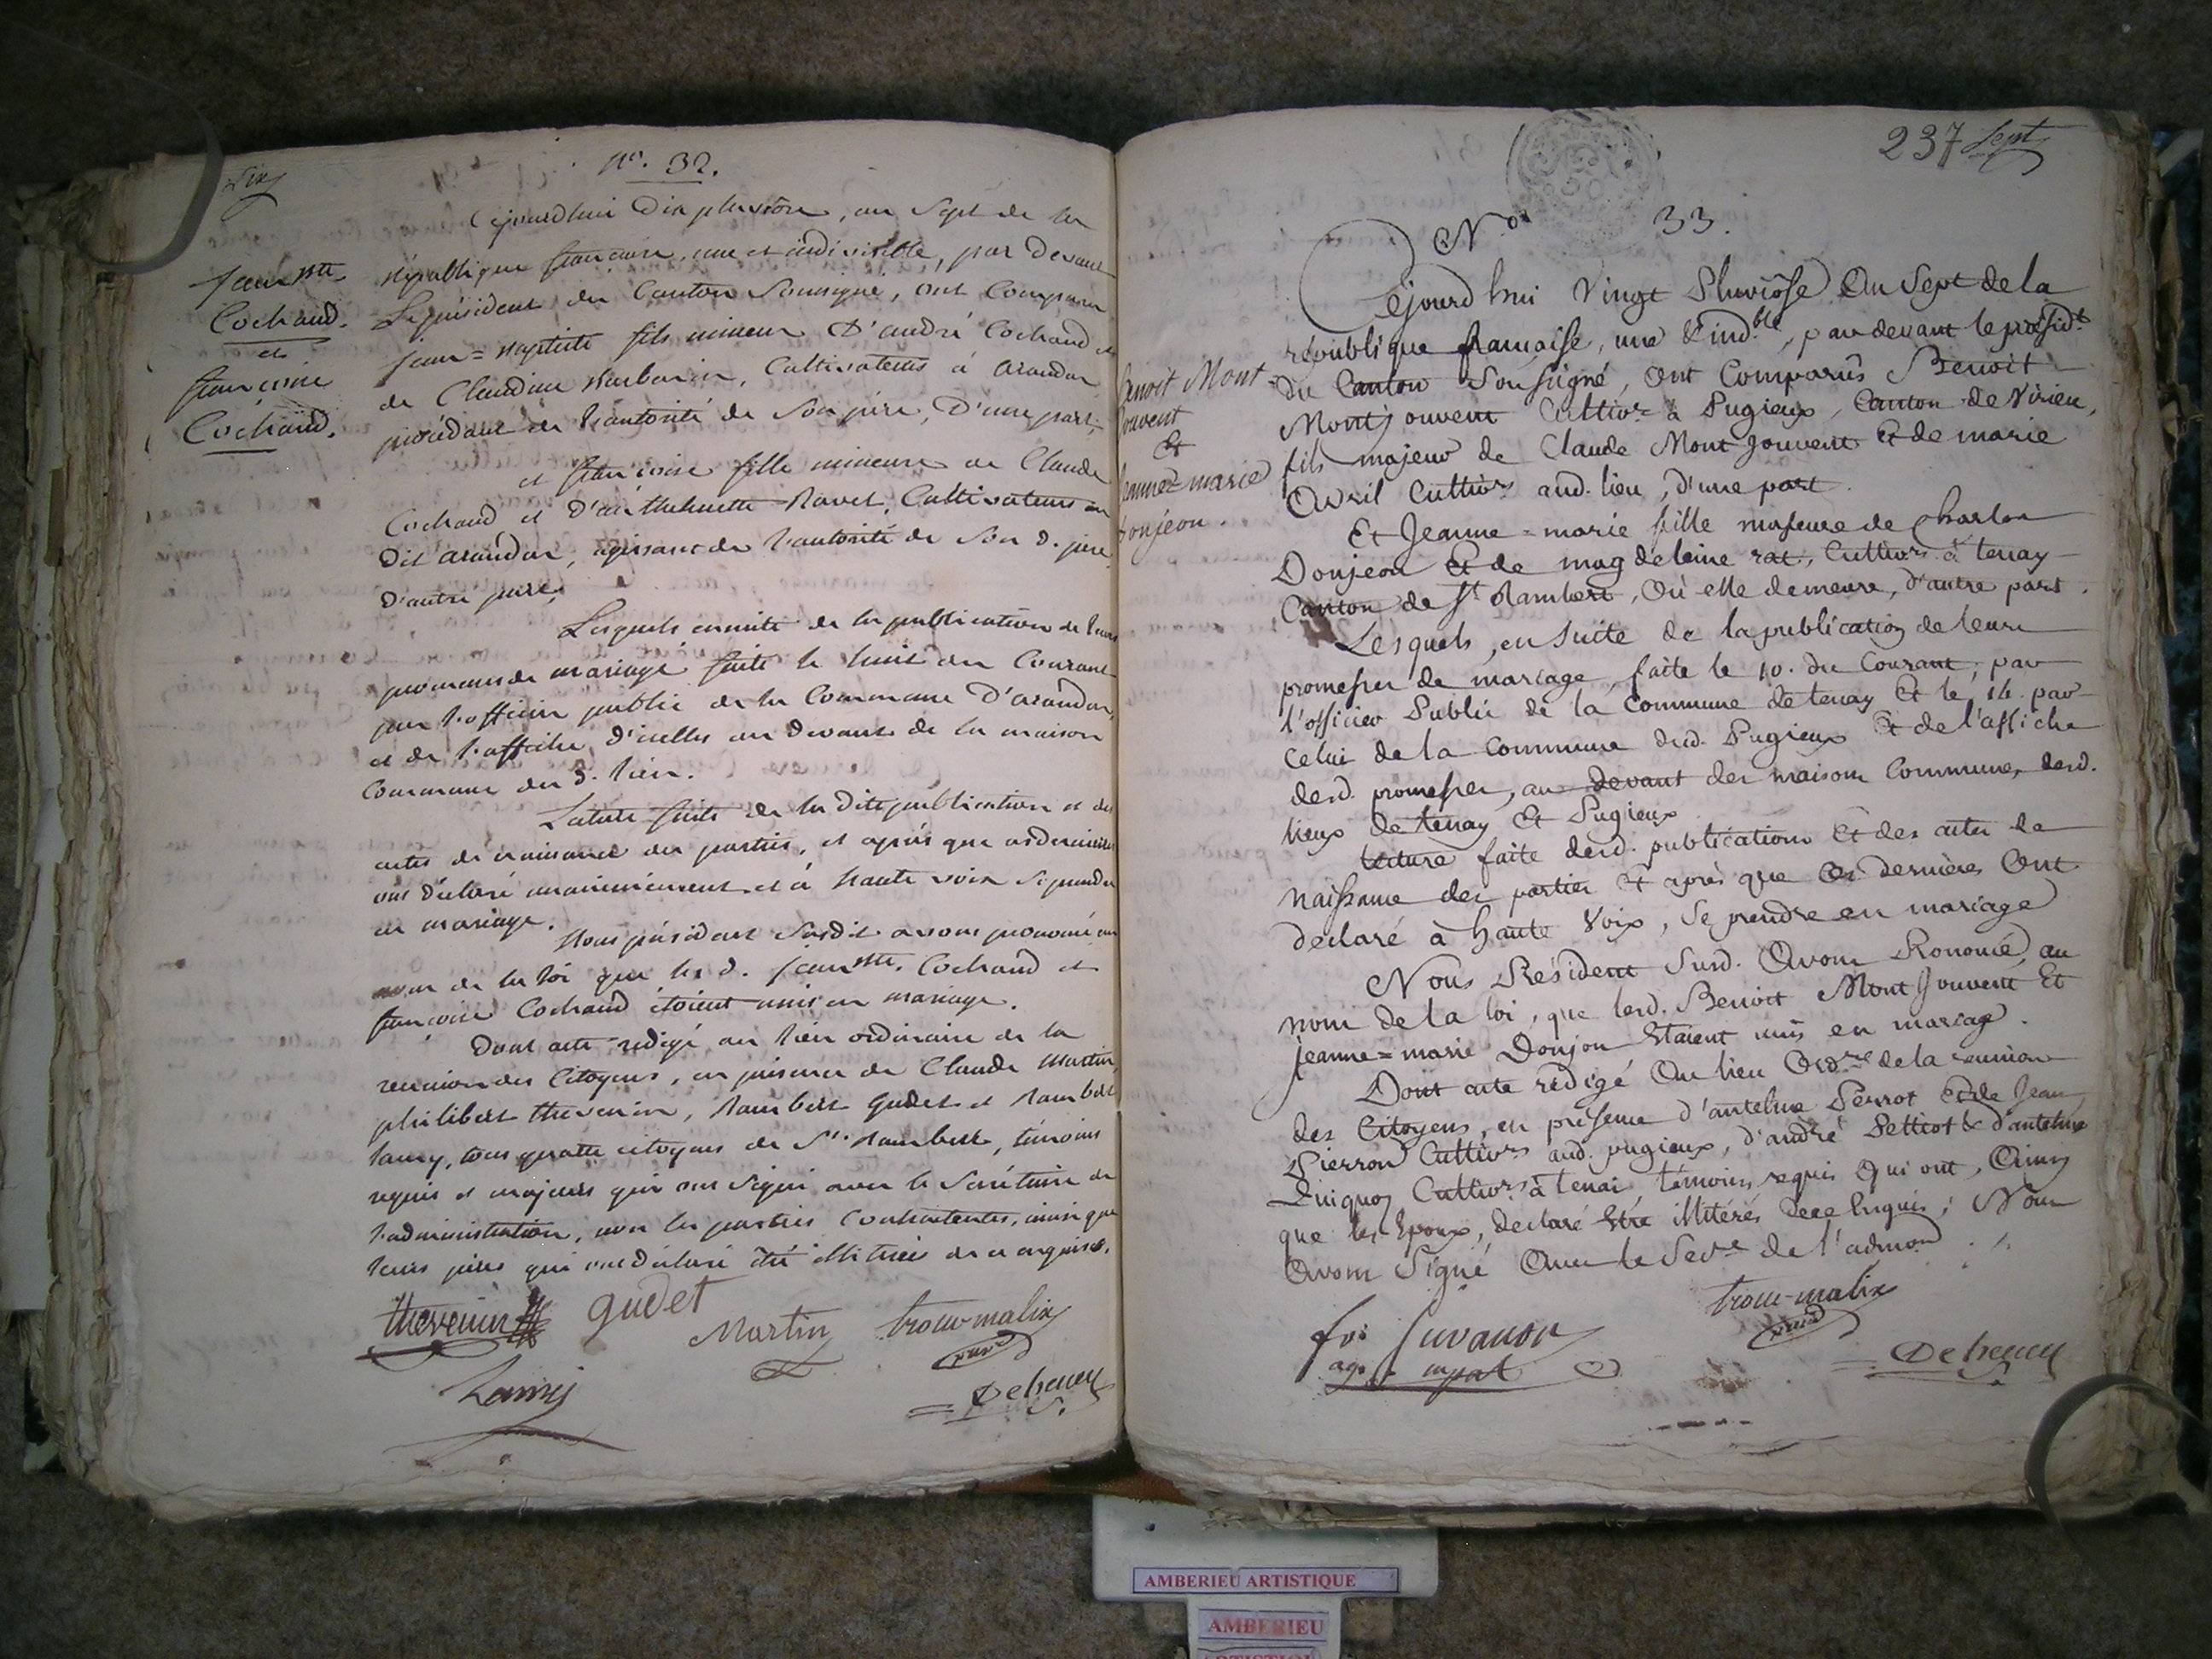 Six
N°. 32.
Cejourdhui Dix pluviôse, an Sept de la
république française, une et indivisible, par devant
Le président du Canton Soussigné, ont Comparu
jean=baptiste fils mineur D'andré Cochand et
de Claudine Barbarin, Cultivateurs à arandas
procédant de l'autorité de Son père, D'une part,
Jean Btte
Cochand.
et
françoise
Cochand.
et françoise fille mineure de Claude
Cochand et D'anthelmette Ravet, Cultivateurs au
Dit arandas, agissant de l'autorité de Son d. père
D'autre part,
Lesquels ensuite de la publication de leurs
promesses de mariage faite le huit du Courant
par l'officier public de la Commune D'arandas,
et de l'affiche D'icelles au Devant de la maison
Commune du d. lieu.
Lecture faite de la Dite publication et des
actes de naissance des parties, et après que ces dernieres
ont déclaré unanimement et à haute voix Se prendre
en mariage.
Nous président Susdit avons prononcé au
nom de la loi que les d. jean Btte. Cochand et
françoise Cochand étoient unis en mariage.
Dont acte rédigé au lieu ordinaire de la
reunion des Citoyens, en présence de Claude Martin,
philibert thevenin, Rambert gudet et Rambert
Lamy, tous quatre citoyens de St. Rambert, témoins
requis et majeurs qui ont Signé avec le Secrétaire de
l'administration, non les parties Contractantes, ainsi que
leurs pères qui ont déclaré être illitérés de ce enquis.
thevenin gudet
Martin
trocu-malix
Lamy
Deheucy
237 Sept
N° 33.
Cejourd'hui Vingt Pluviôse An Sept de la
république française, une & ind.ble, par devant le présid.t
du Canton Soussigné, ont Comparûs Benoit
Montjouvent Cultivr. à Pugieux, Canton de Virieu,
fils majeur de Claude Montjouvent Et de marie
Avril Cultivrs aud. lieu, d'une part.
Benoit Mont=
jouvent
Et
Jeanne=marie
Donjeon.
Et Jeanne=marie fille majeure de Charles
Donjeon Et de magdeleine rat, Cultivrs. à tenay
Canton de St. Rambert, Où elle demeure, d'autre part.
Lesquels, en Suite de la publication de leurs
promesses de mariage, faite le 10. du Courant, par
l'officier Public de la Commune de tenay Et le 14. par
Celui de la Commune dud. Pugieux Et de l'affiche
desd. promesses, au devant des maisons Communes desd.
lieux de tenay Et Pugieux.
lecture faite desd. publications Et des actes de
naissance des parties Et après que ces dernières Ont
declaré à haute Voix, Se prendre en mariage
Nous Président Susd. Avons Prononcé, au
nom de la loi, que lesd. Benoit Montjouvent Et
jeanne=marie Donjon Etaient unis en mariage.
Dont acte rédigé Au lieu Ord.re de la reunion
des Citoyens, en présence d'antelme Perrot Et de Jean
Pierron Cultivrs. aud. pugieux, d'andré Pettiot & d'antelme
Quiquoz Cultivrs. à tenai témoins requis Qui ont, Ainsy
que les Epoux, declaré Etre illitérés de ce Enquis; Nous
Avons Signé Avec le Sec.re de l'admon.
trocu-malix
Deheucy
AMBERIEU ARTISTIQUE
AMBERIEU
ARTISTIQUE